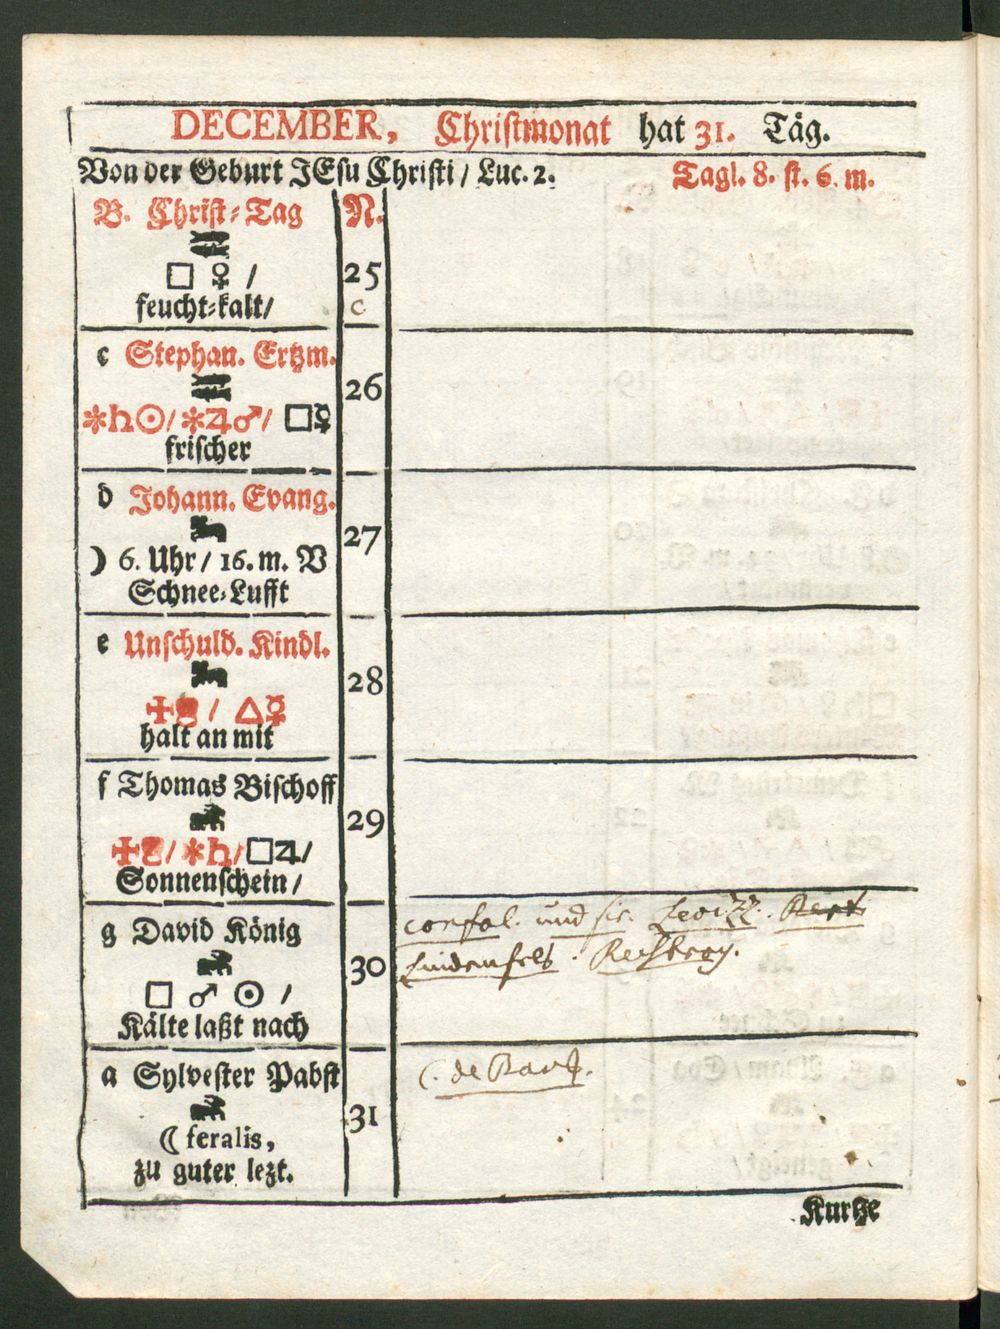 DECEMBER, Christmonat hat 31. Täg.
Von der Geburt JEsu Christi / Luc. 2. Tagl. 8. st. 6. m.
B. Christ-Tag N.
□ ♀ / 25
feucht-kalt/ c
c Stephan. Ertzm.
26
✱♄☉/ ✱♃♂/ □☿
frischer
d Johann. Evang.
27
☽ 6. Uhr / 16. m. V
Schnee-Lufft
e Unschuld. Kindl.
28
/ △☿
halt an mit
f Thomas Bischoff
29
/ ✱♄/ □♃/
Sonnenschein /
g David König
confal. und
Lindenfels.
30
□ ♂ ☉ /
Kälte laßt nach
a Sylvester Pabst
C. de
31
☾ feralis,
zu guter lezt.
Kurtze